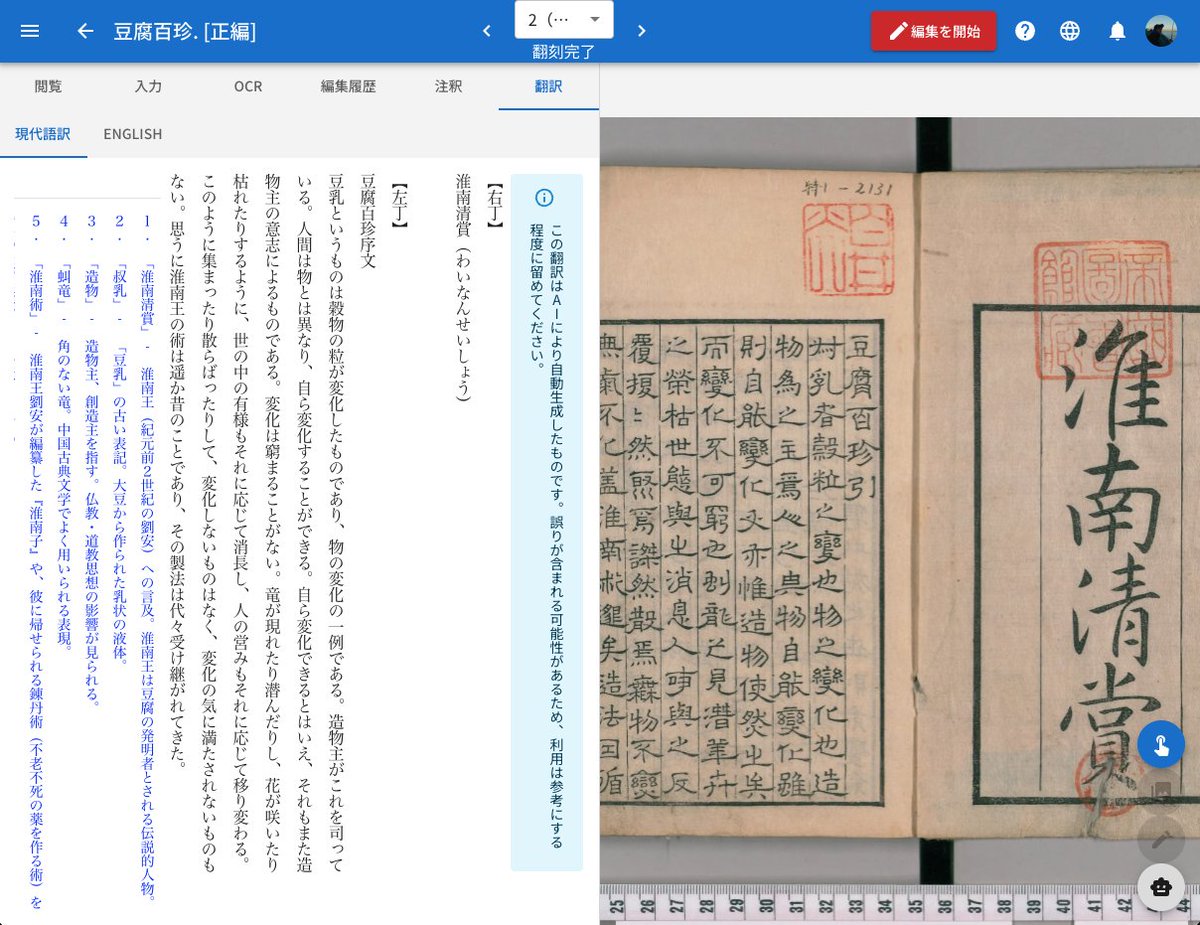 豆腐百珍. [正編]
2 (…
翻刻完了
編集を開始
閲覧
入力
OCR
編集履歴
注釈
翻訳
現代語訳
ENGLISH
この翻訳はAIにより自動生成したものです。誤りが含まれる可能性があるため、利用は参考にする
程度に留めてください。
【右丁】
淮南清賞（わいなんせいしょう）
【左丁】
豆腐百珍序文
豆乳というものは穀物の粒が変化したものであり、物の変化の一例である。造物主がこれを司って
いる。人間は物とは異なり、自ら変化することができる。自ら変化できるとはいえ、それもまた造
物主の意志によるものである。変化は窮まることがない。竜が現れたり潜んだりし、花が咲いたり
枯れたりするように、世の中の有様もそれに応じて消長し、人の営みもそれに応じて移り変わる。
このように集まったり散らばったりして、変化しないものはなく、変化の気に満たされないものも
ない。思うに淮南王の術は遥か昔のことであり、その製法は代々受け継がれてきた。
1. 「淮南清賞」 - 淮南王（紀元前2世紀の劉安）への言及。淮南王は豆腐の発明者とされる伝説的人物。
2. 「叔乳」 - 「豆乳」の古い表記。大豆から作られた乳状の液体。
3. 「造物」 - 造物主、創造主を指す。仏教・道教思想の影響が見られる。
4. 「虯竜」 - 角のない竜。中国古典文学でよく用いられる表現。
5. 「淮南術」 - 淮南王劉安が編纂した『淮南子』や、彼に帰せられる錬丹術（不老不死の薬を作る術）を
淮南清賞
特1-2131
豆腐百珍引
乳者穀粒之變也物之變化也造
物為之主焉人之與物自能變化雖
則自能變化又亦惟造物使然也矣
而變化不可窮也虯龍之見潛華卉
之榮枯世態與之消息人事與之反
覆擾々然焉然散焉無物不變
無氣不化蓋淮南術邈矣造法因循
25 26 27 28 29 30 31 32 33 34 35 36 37 38 39 40 41 42 44